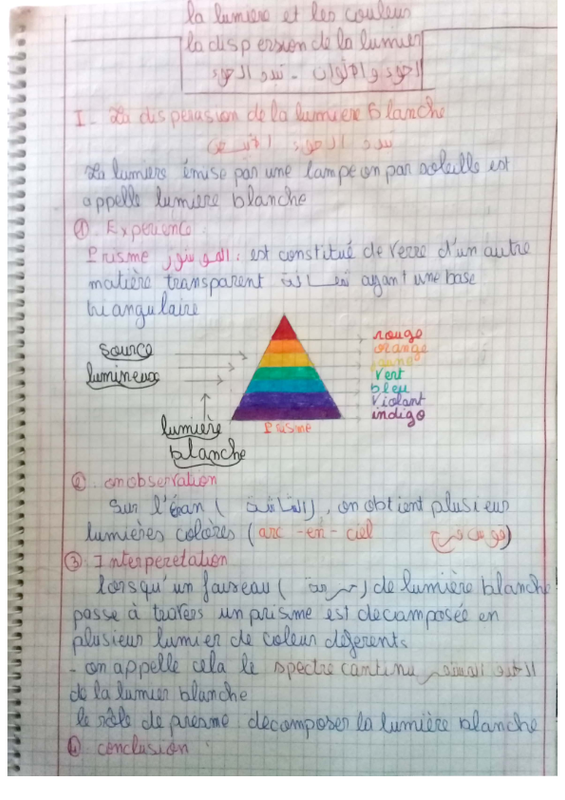 la lumiere et les couleur
la dispersion de la lumier
الضوء و الألوان - تبدد الضوء
I - La disperasion de la lumiere Blanche
تبدد الضوء الأبيض
La lumiere émise par une lampe on par soleille est
appelle lumiere blanche
① Experience :
Prisme الموشور : est constitué de verre d'un autre
matière transparent شفافة ayant une base
triangulaire
source
lumineux
lumière
blanche
Prisme
rouge
orange
jaune
Vert
bleu
Violant
indigo
② on observation
Sur l'écan ( الشاشة ), on obtient plusieur
lumières colores (arc - en - ciel قوس قزح)
③ Interperetation
lorsqu'un faiseau ( حزمة ) de lumière blanche
passe à travers un prisme est decomposée en
plusieur lumier de coleur deferents
- on appelle cela le spectre cantinu الطيف المستمر
de la lumier blanche
le rôle de presme decomposer la lumière blanche
④ conclusion :